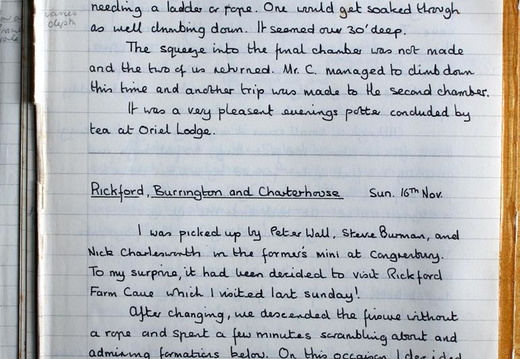 needing a ladder or rope. One would get soaked through
as well climbing down. It seemed over 30' deep.
The squeeze into the final chamber was not made
and the two of us returned. Mr. C. managed to climb down
this time and another trip was made to the second chamber.
It was a very pleasent evenings potter concluded by
tea at Oriel Lodge.
Rickford, Burrington and Charterhouse Sun. 16th Nov.
I was picked up by Peter Wall, Steve Burman, and
Nick Charlesworth in the former's mini at Congresbury.
To my surprise, it had been decided to visit Rickford
Farm Cave which I visited last sunday!
After changing, we descended the fissure without
a rope and spent a few minutes scrambling about and
admiring formations below. On this occasion I decided